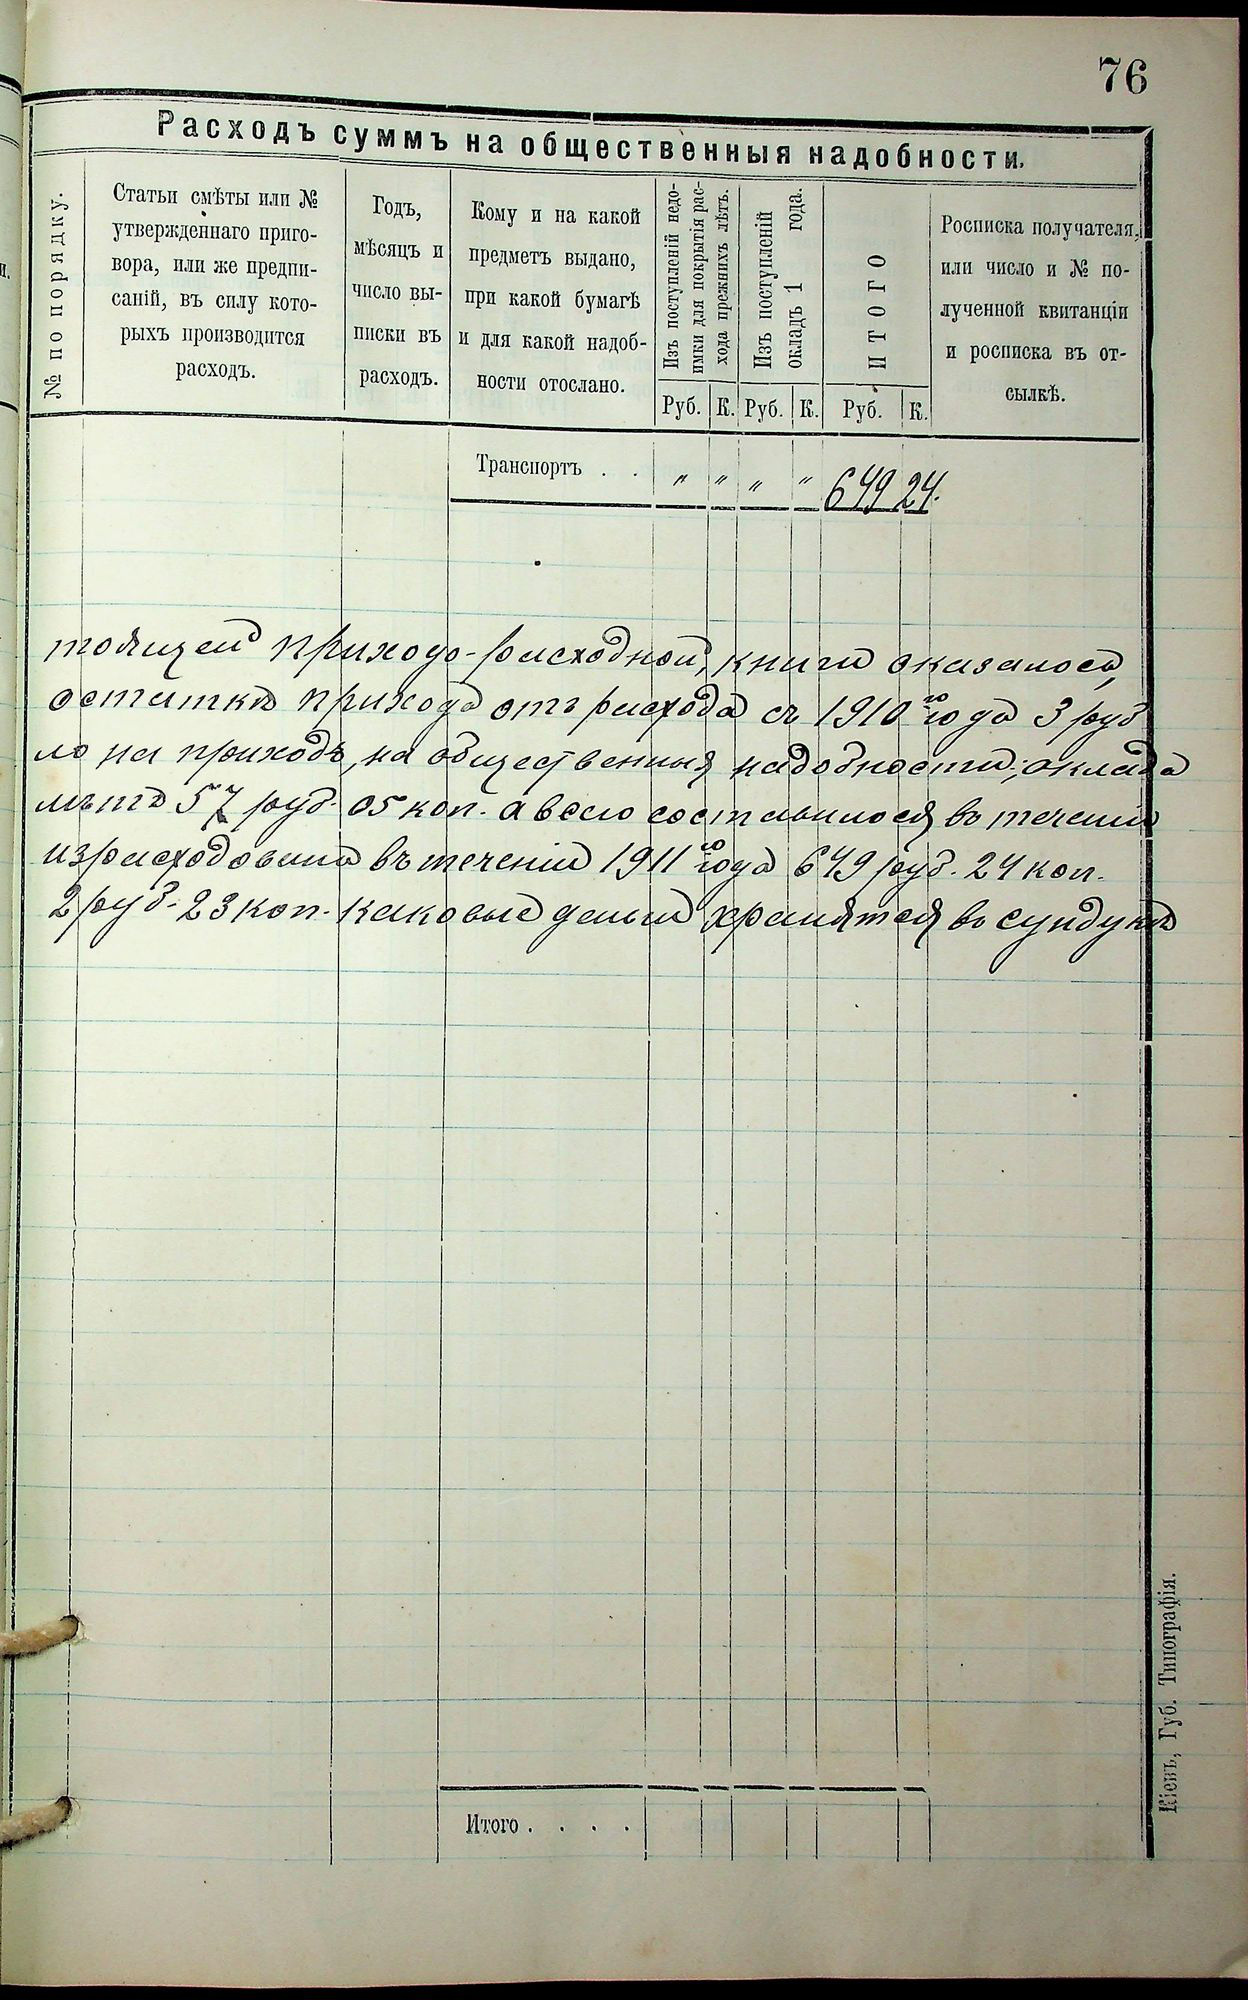 76
Расходъ суммъ на общественныя надобности.
№ по порядку.
Статьи смѣты или №
утвержденнаго приго-
вора, или же предпи-
саній, въ силу кото-
рыхъ производится
расходъ.
Годъ,
мѣсяцъ и
число вы-
писки въ
расходъ.
Кому и на какой
предметъ выдано,
при какой бумагѣ
и для какой надоб-
ности отослано.
Изъ поступленій недо-
имки для покрытія рас-
хода прежнихъ лѣтъ.
Изъ поступленій
окладъ 1 года.
ИТОГО
Росписка получателя,
или число и № по-
лученной квитанціи
и росписка въ от-
сылкѣ.
Руб. К. Руб. К. Руб. К.
Транспортъ . . " " " " 649 24.
тоящей приходо-расходной, книги оказалось,
остатка прихода отъ расхода съ 1910 го года 3 руб
ло на приходъ, на общественныя надобности; оклада
лѣта 57 руб. 05 коп. а всего составилося въ теченіи
израсходовано въ теченіи 1911 го года 649 руб. 24 коп.
2 руб. 23 коп. каковые деньги хранятся въ сундукѣ
Итого . . . .
Кіевъ, Губ. Типографія.